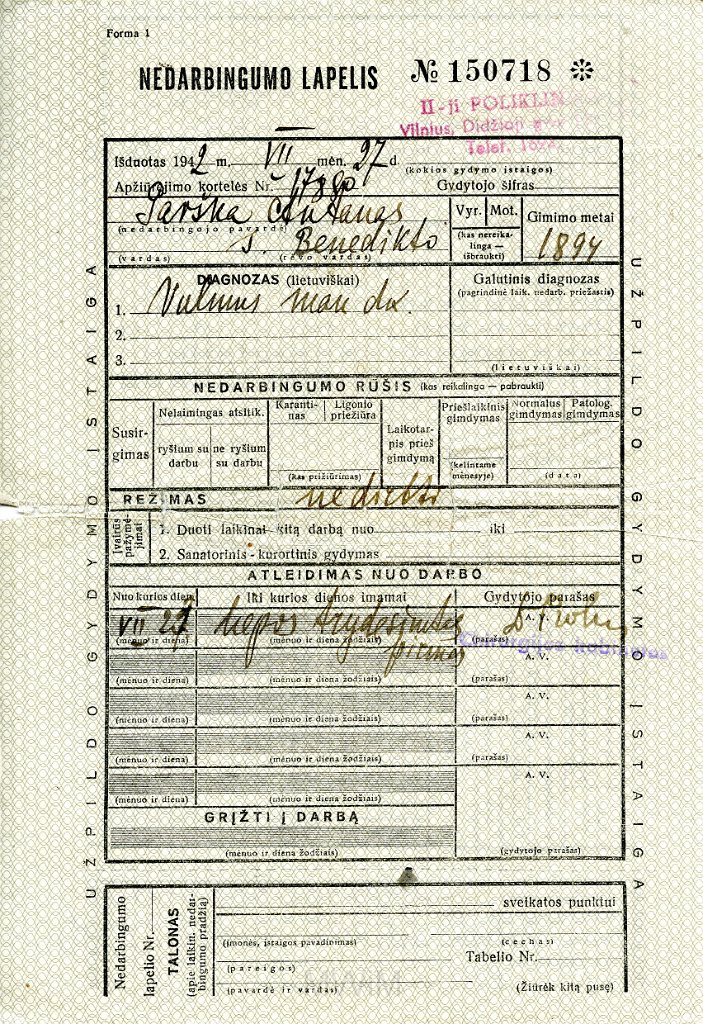 Forma 1
NEDARBINGUMO LAPELIS № 150718 ✻
II-ji POLIKLIN
Vilnius, Didžioji
Telef.
Išduotas 1942 m. VII mėn. 27 d.
(kokios gydymo įstaigos)
Apžiūrėjimo kortelės Nr. Gydytojo šifras
Parška Antanas
(nedarbingojo pavardė)
s. Benedikto
(vardas) (tėvo vardas)
Vyr. Mot.
(kas nereika-
linga —
išbraukti)
Gimimo metai
1894
DIAGNOZAS (lietuviškai)
1. Vulnus man dx.
2.
3.
Galutinis diagnozas
(pagrindinė laik. nedarb. priežastis)
(lietuviškai)
NEDARBINGUMO RŪŠIS (kas reikalinga — pabraukti)
Susir-
gimas
Nelaimingas atsitik.
ryšium su
darbu
ne ryšium
su darbu
Karanti-
nas
Ligonio
priežiūra
(kas prižiūrimas)
Laikotar-
pis prieš
gimdymą
Priešlaikinis
gimdymas
(kelintame
mėnesyje)
Normalus
gimdymas
Patolog.
gimdymas
(data)
REŽIMAS
Įvairūs
pažymė-
jimai
1. Duoti laikinai kitą darbą nuo iki
2. Sanatorinis - kurortinis gydymas
ATLEIDIMAS NUO DARBO
Nuo kurios dien. Iki kurios dienos imamai Gydytojo parašas
VII 27 liepos trydešimtas
pirmos
A. V.
(mėnuo ir diena) (mėnuo ir diena žodžiais) (parašas)
A. V.
(mėnuo ir diena) (mėnuo ir diena žodžiais) (parašas)
A. V.
(mėnuo ir diena) (mėnuo ir diena žodžiais) (parašas)
A. V.
(mėnuo ir diena) (mėnuo ir diena žodžiais) (parašas)
A. V.
(mėnuo ir diena) (mėnuo ir diena žodžiais)
GRĮŽTI Į DARBĄ
(mėnuo ir diena žodžiais) (gydytojo parašas)
UŽPILDO GYDYMO ISTAIGA
UŽPILDO GYDYMO ĮSTAIGA
Nedarbingumo
lapelio Nr.
TALONAS
(apie laikin. nedar-
bingumo pradžią)
sveikatos punktui
(įmonės, įstaigos pavadinimas) (cechas)
Tabelio Nr.
(pareigos)
(pavardė ir vardas) (Žiūrėk kitą pusę)